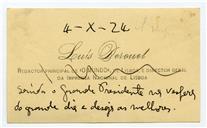 4-X-24
Luís Derouet
REDACTOR PRINCIPAL DE «O MUNDO», DE LISBOA E DIRECTOR GERAL
DA IMPRENSA NACIONAL DE LISBOA
o grande Presidente na vespera
do grande dia e deseja as melhoras.